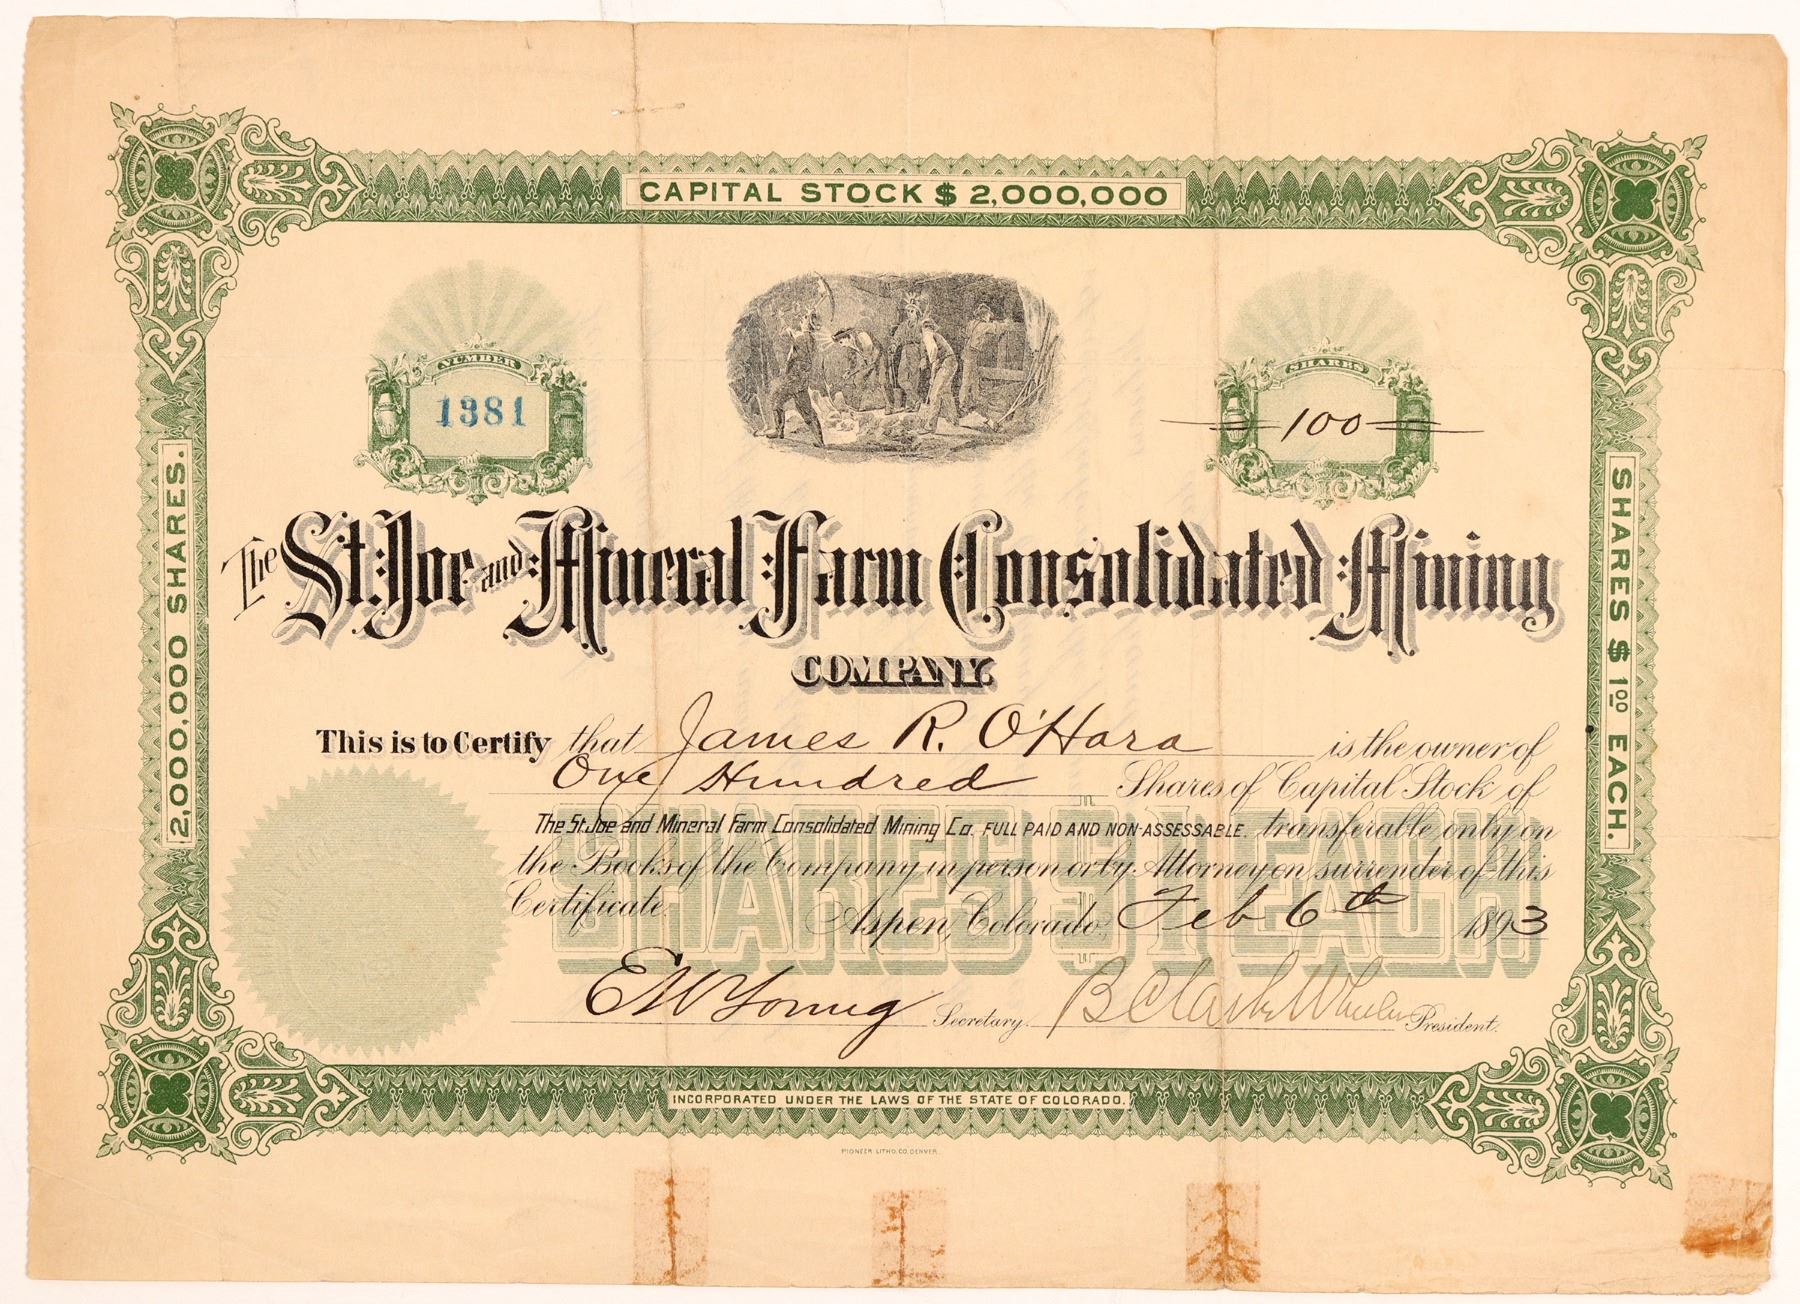 CAPITAL STOCK $ 2,000,000
NUMBER
1381
SHARES
100
2,000,000 SHARES.
SHARES $ 1.00 EACH.
The St. Joe and Mineral Farm Consolidated Mining
COMPANY.
This is to Certify that James R. O'Hara is the owner of
One Hundred Shares of Capital Stock of
The St. Joe and Mineral Farm Consolidated Mining Co. FULL PAID AND NON-ASSESSABLE. transferable only on
the Books of the Company in person or by Attorney on surrender of this
Certificate.
SHARES $1 EACH
Aspen, Colorado, Feb 6th 1893
E W Young Secretary. B Clark Wheeler President.
INCORPORATED UNDER THE LAWS OF THE STATE OF COLORADO.
PIONEER LITHO. CO. DENVER.